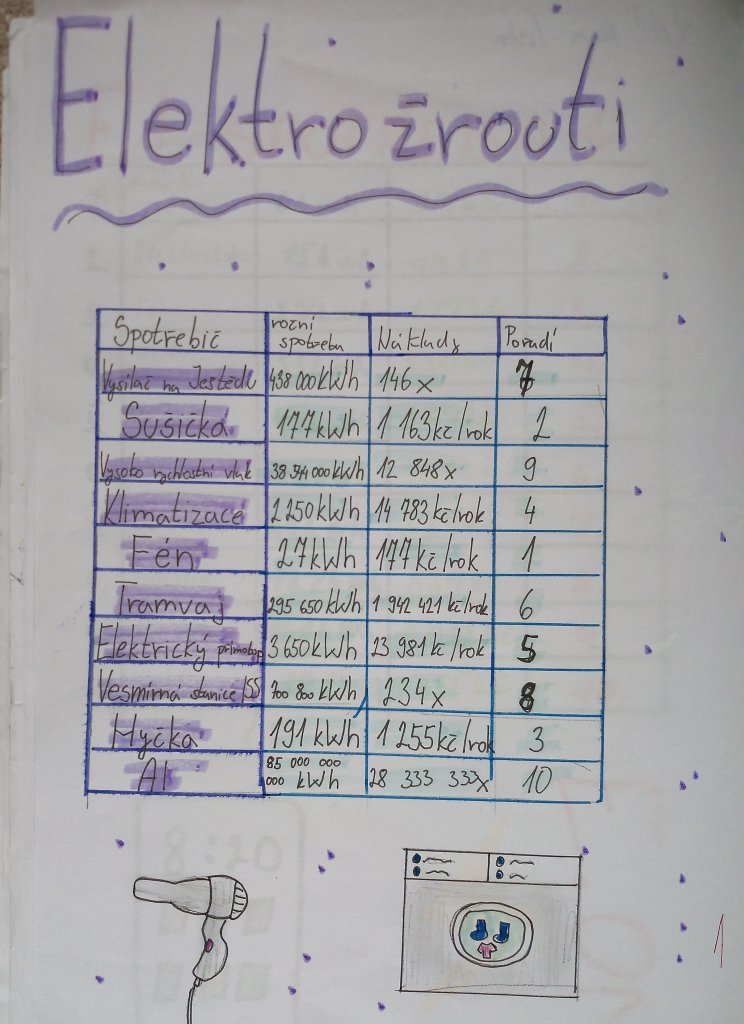 Elektrožrouti
Spotřebič roční spotřeba Náklady Pořadí
Vysílač na Ještědu 438 000 kWh 146x 7
Sušička 177 kWh 1 163 kč/rok 2
Vysoko rychlostní vlak 38 544 000 kWh 12 848x 9
Klimatizace 2 250 kWh 14 783 kč/rok 4
Fén 27 kWh 177 kč/rok 1
Tramvaj 295 650 kWh 1 942 421 kč/rok 6
Elektrický přímotop 3 650 kWh 23 981 kč/rok 5
Vesmírná stanice ISS 700 800 kWh 234x 8
Myčka 191 kWh 1 255 kč/rok 3
AI 85 000 000 000 kWh 28 333 333x 10
1